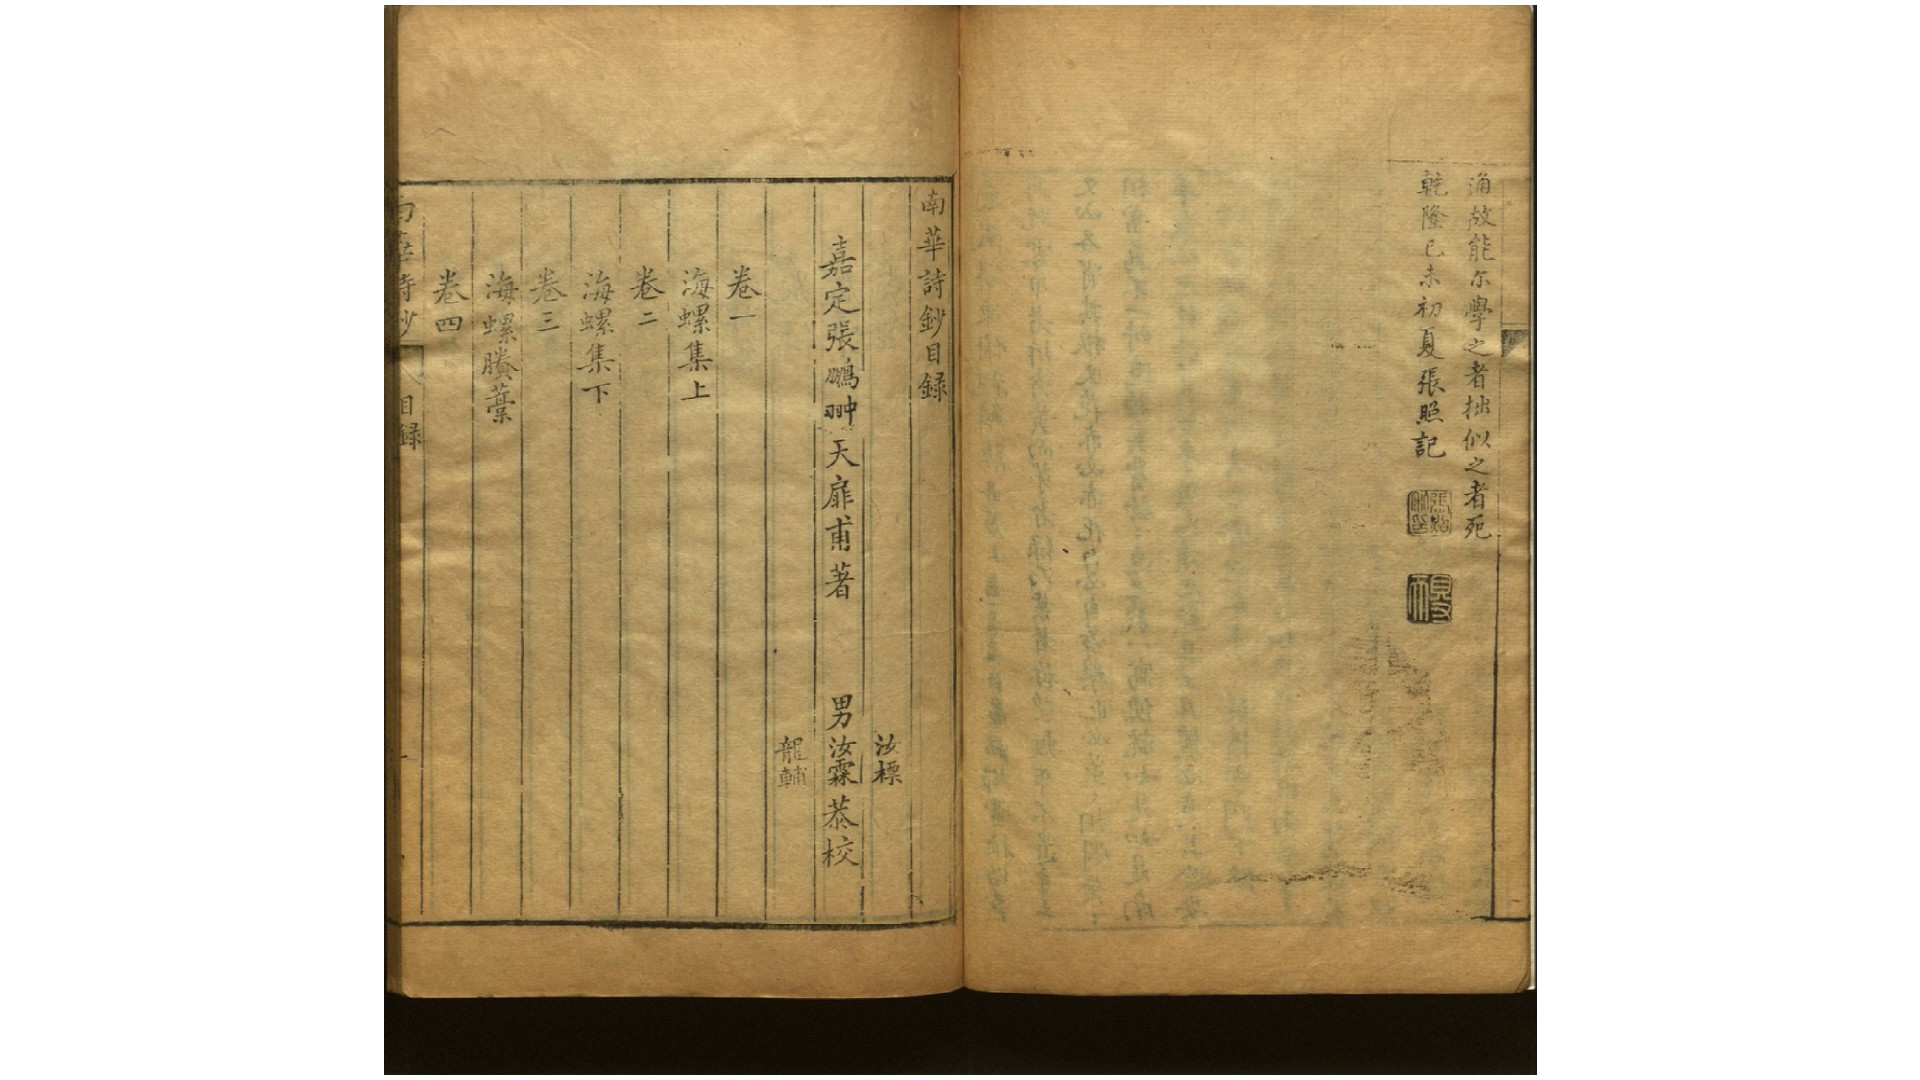 通故能尓學之者拙似之者死
乾隆己未初夏張照記
張照
南華詩鈔目録
汝標
嘉定張鵬翀天扉甫著 男汝霖恭校
龍輔
卷一
海螺集上
卷二
海螺集下
卷三
海螺賸藁
卷四
南華詩鈔 目録 一